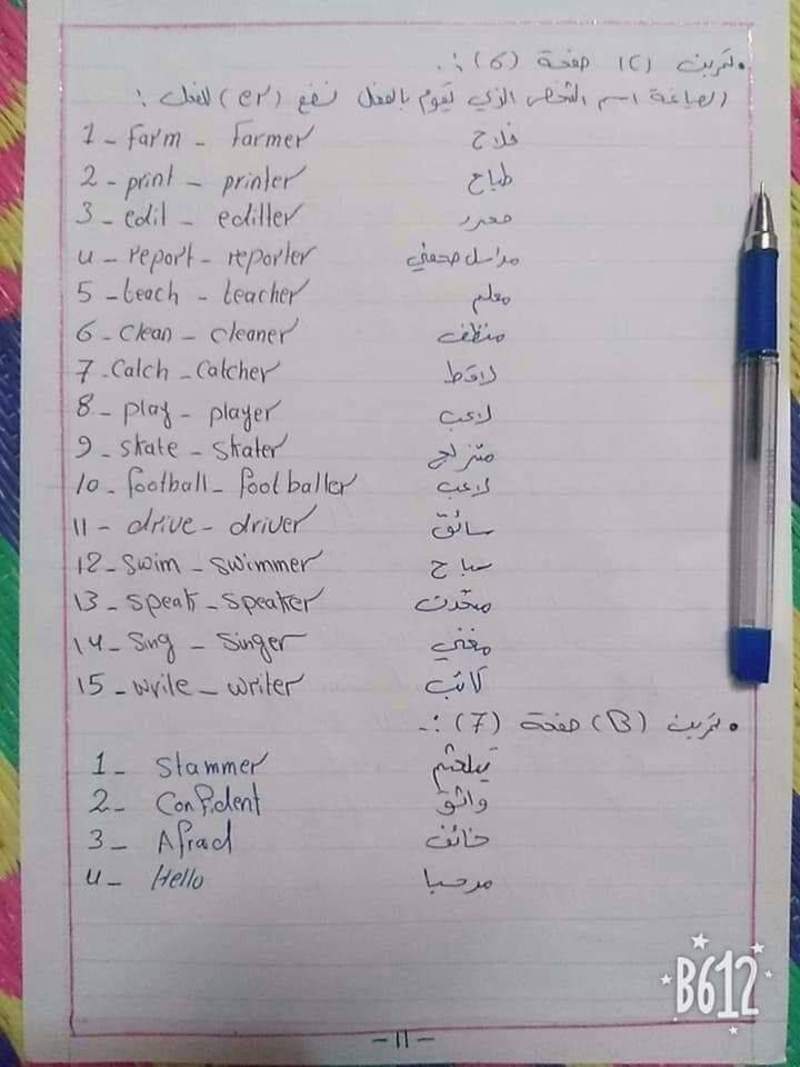 • تمرين (C) صفحة (6) :.
لصياغة اسم الشخص الذي يقوم بالفعل نضع (er) للفعل :
1 - farm - farmer فلاح
2 - print - printer طباع
3 - edit - editter محرر
4 - report - reporter مراسل صحفي
5 - teach - teacher معلم
6 - clean - cleaner منظف
7 - Catch - Catcher لاقط
8 - play - player لاعب
9 - skate - skater متزلج
10 - football - footballer لاعب
11 - drive - driver سائق
12 - swim - swimmer سباح
13 - speak - speaker متحدث
14 - Sing - Singer مغني
15 - write - writer كاتب
• تمرين (B) صفحة (7) :.
1 - Stammer يتلعثم
2 - Confident واثق
3 - Afrad خائف
4 - Hello مرحبا
B612
- 11 -